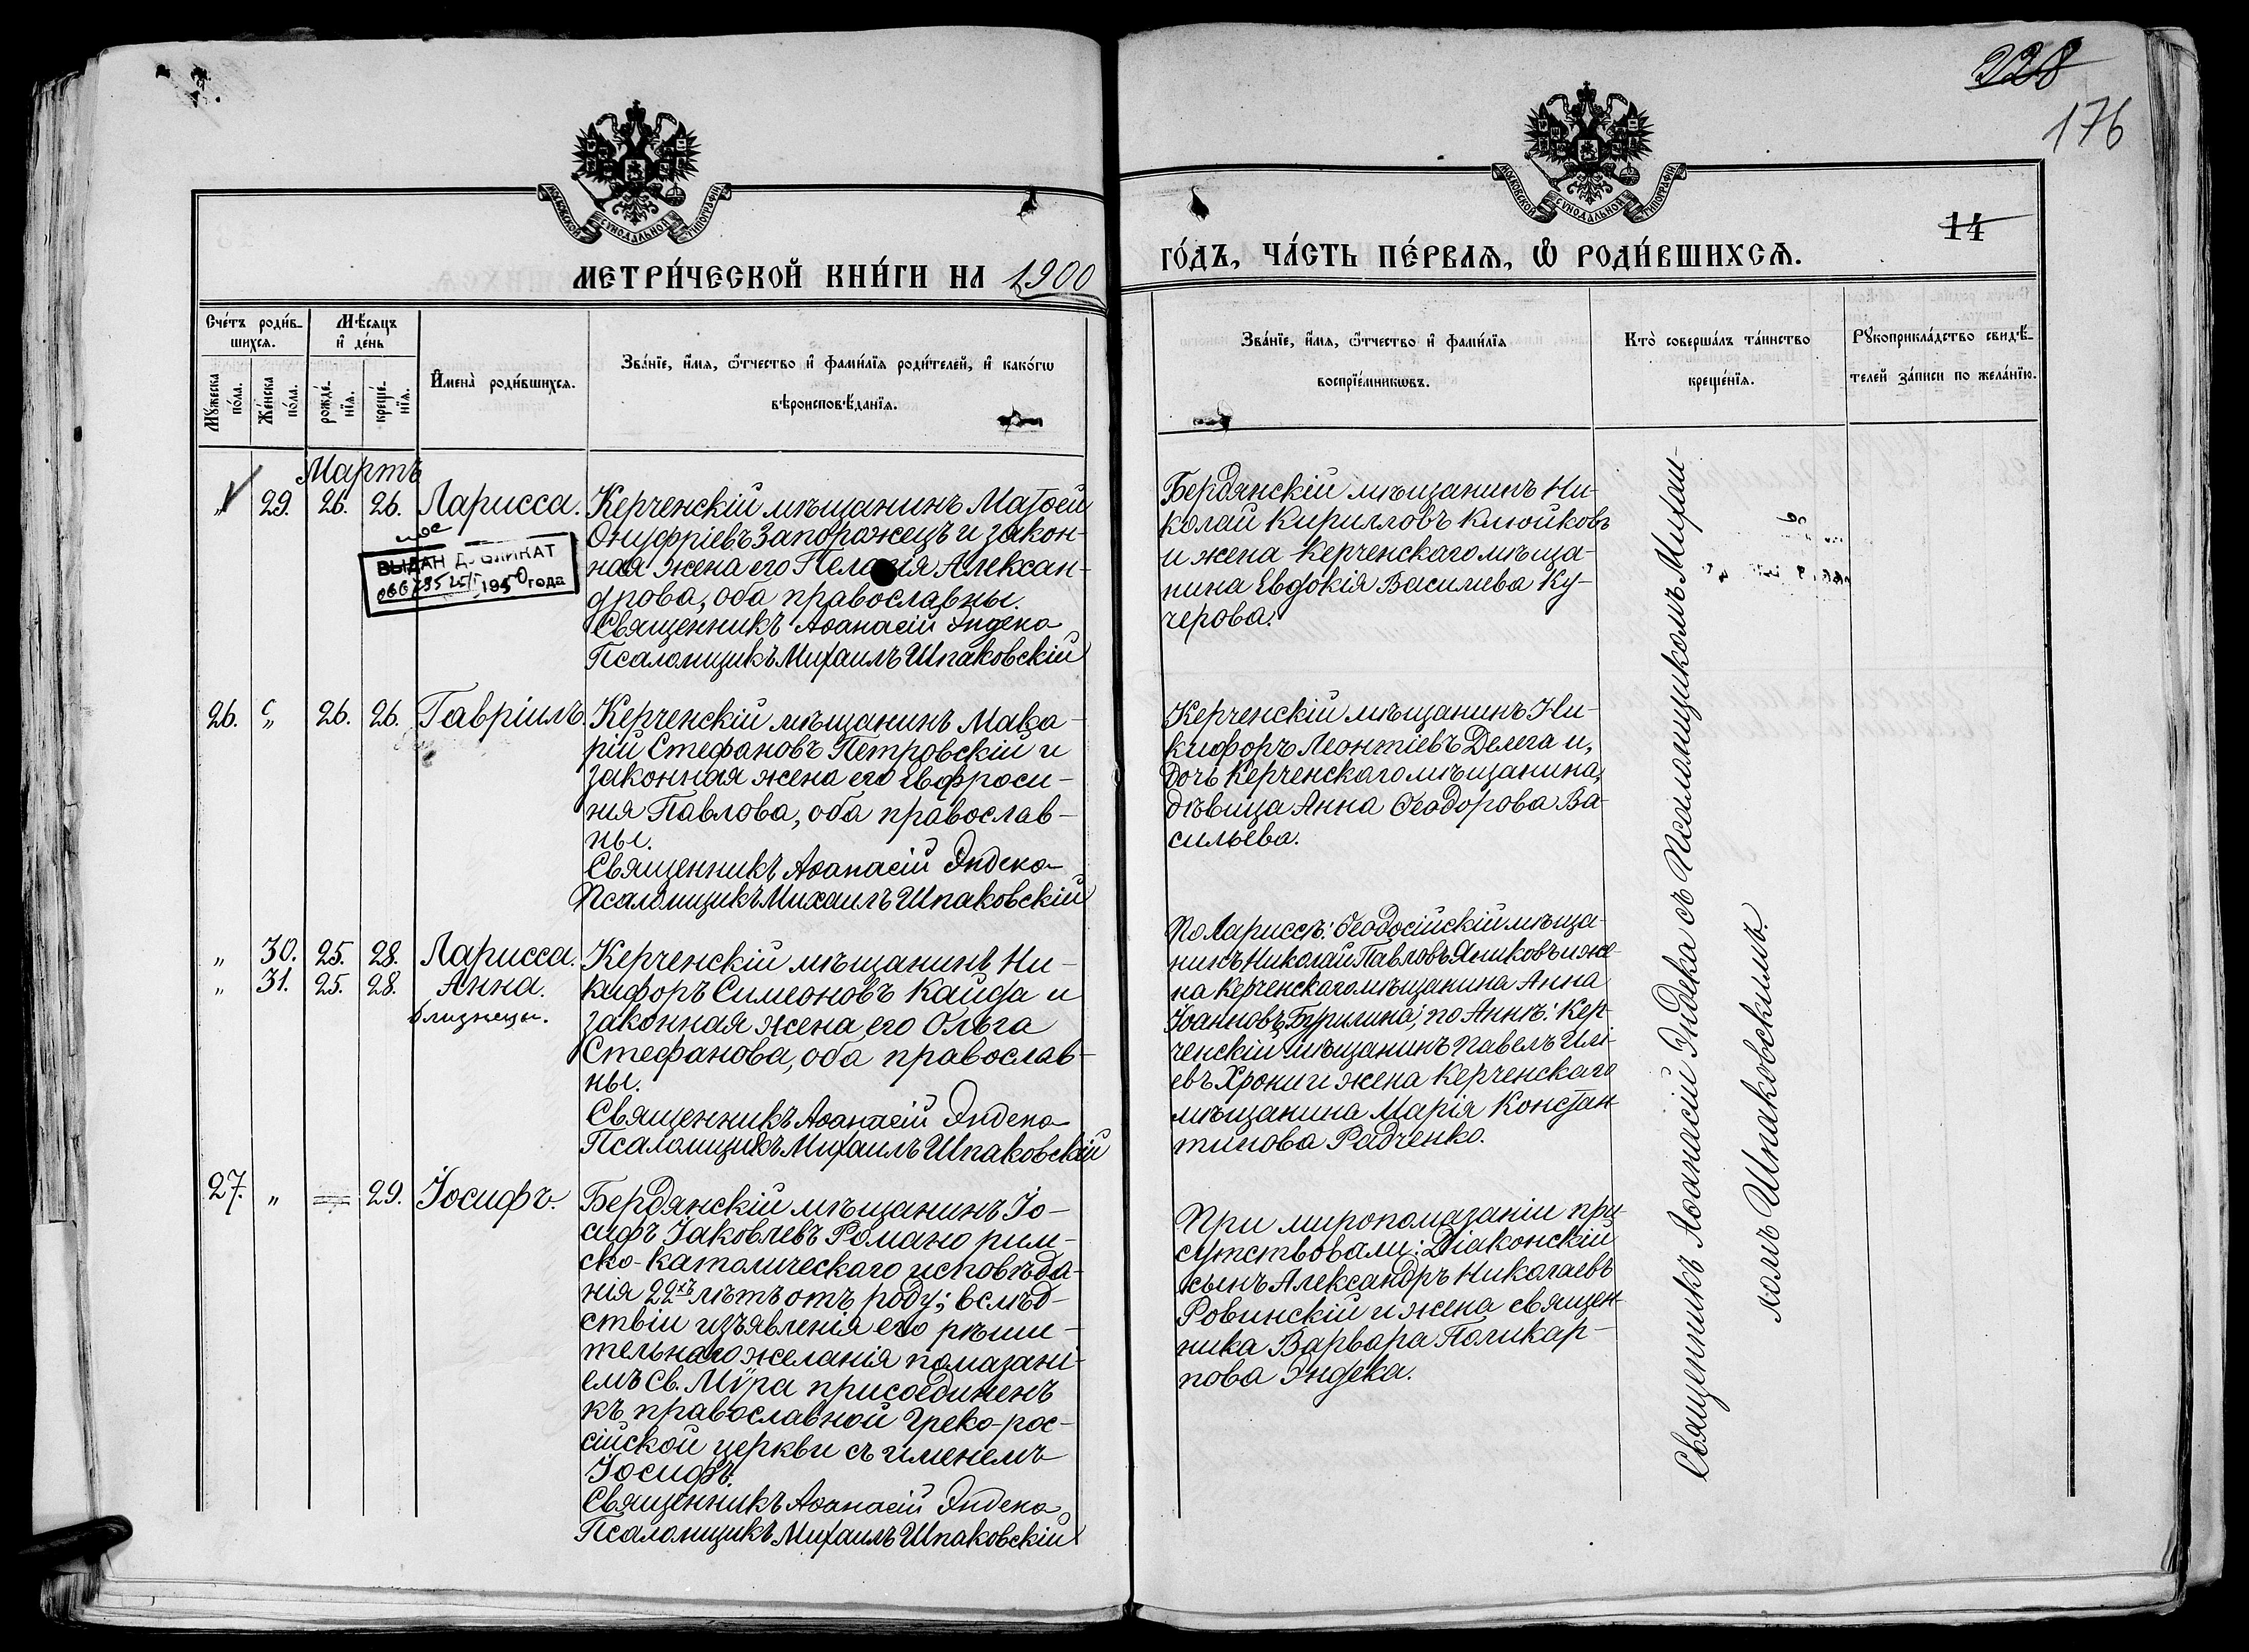 228
176
14
МОСКОВСКОЙ СѴНОДАЛЬНОЙ ТИПОГРАФІИ
МОСКОВСКОЙ СѴНОДАЛЬНОЙ ТИПОГРАФІИ
МЕТРИ́ЧЕСКОЙ КНИ́ГИ НА 1900
ГО́ДЪ, ЧА́СТЬ ПЕ́РВАѦ, Ѡ҆ РОДИ́ВШИХСѦ.
Сче́тъ роди́в-
шихсѧ.
Мꙋ́жеска по́ла.
Же́нска по́ла.
Мѣ́сѧцъ
и҆ де́нь
рожде́-
нїѧ.
креще́-
нїѧ.
И҆мена̀ роди́вшихсѧ.
Зва́нїе, и҆́мѧ, ѻ҆́тчество и҆ фами́лїѧ роди́телей, и҆ како́гѡ
вѣроисповѣ́данїѧ.
Зва́нїе, и҆́мѧ, ѻ҆́тчество и҆ фами́лїѧ
воспрїе́мникѡвъ.
Кто̀ соверша́лъ та́инство
креще́нїѧ.
Рꙋкоприкла́дство свидѣ́-
телей за́писи по жела́нїю.
Мартъ
„ 29. 26. 26. Ларисса.
ВЫДАН ДУБЛИКАТ
1950 года
Керченскій мѣщанинъ Матѳей
Онуфріевъ Запорожецъ и закон-
ная жена его Пелагія Алексан-
дрова, оба православны.
Священникъ Аѳанасій Эндека
Псаломщикъ Михаилъ Шпаковскій
Бердянскій мѣщанинъ Ни-
колай Кирилловъ Клюйковъ
и жена Керченскаго мѣща-
нина Евдокія Василиева Ку-
черова.
26. „ 26. 26. Гавріилъ.
Керченскій мѣщанинъ Мака-
рій Стефановъ Петровскій и
законная жена его Евфроси-
нія Павлова, оба православ-
ны.
Священникъ Аѳанасій Эндека
Псаломщикъ Михаилъ Шпаковскій
Керченскій мѣщанинъ Ни-
кифоръ Леонтіевъ Делега и,
дочь Керченскаго мѣщанина,
дѣвица Анна Ѳеодорова Ва-
сильева.
„ 30. 25. 28. Ларисса.
„ 31. 25. 28. Анна.
близнецы.
Керченскій мѣщанинъ Ни-
кифоръ Симеоновъ Кайфа и
законная жена его Ольга
Стефанова, оба православ-
ны.
Священникъ Аѳанасій Эндека
Псаломщикъ Михаилъ Шпаковскій
По Лариссѣ: Ѳеодосійскій мѣща-
нинъ Николай Павловъ Яликовъ и же-
на Керченскаго мѣщанина Анна
Іоаннова Бурилина; по Аннѣ: Кер-
ченскій мѣщанинъ Павелъ Илі-
евъ Хрони и жена Керченскаго
мѣщанина Марія Констан-
тинова Радченко.
27. „ 29. Іосифъ.
Бердянскій мѣщанинъ Іо-
сифъ Іаковлевъ Романо рим-
ско-католическаго исповѣда-
нія 22хъ лѣтъ отъ роду; вслѣд-
ствіи изъявленія его рѣши-
тельнаго желанія помазані-
емъ Св. Мѵра присоединенъ
къ православной Греко-рос-
сійской церкви съ именемъ
Іосифъ.
Священникъ Аѳанасій Эндека
Псаломщикъ Михаилъ Шпаковскій
При миропомазаніи при-
сутствовали: Діаконскій
сынъ Александръ Николаевъ
Ровинскій и жена священ-
ника Варвара Поликар-
пова Эндека.
Священникъ Аѳанасій Эндека съ Псаломщикомъ Михаи-
ломъ Шпаковскимъ.